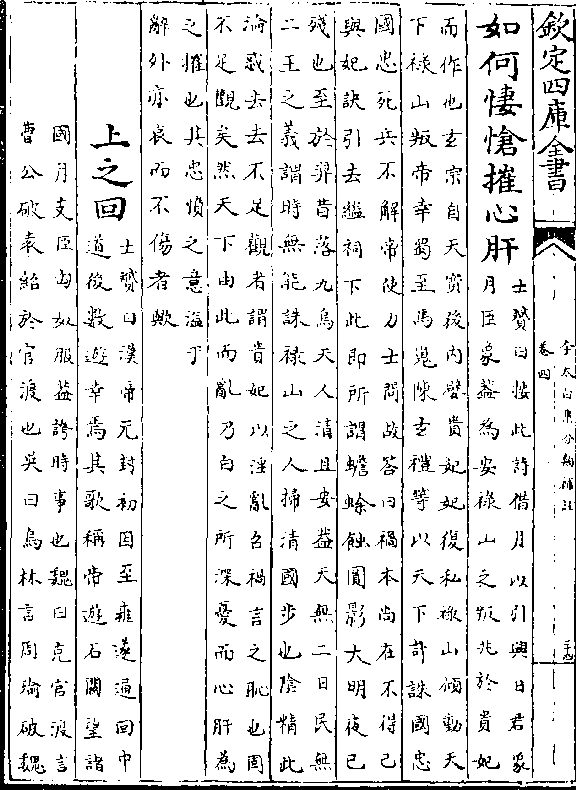 欽定四庫全書
李太白集分類補註
卷四
二十四
如何悽愴摧心肝
士贇曰按此詩借月以引興日君象
月臣象葢為安禄山之叛兆於貴妃
而作也玄宗自天寳後内嬖貴妃妃復私禄山傾動天
下禄山叛帝幸蜀至馬嵬陳玄禮等以天下計誅國忠
國忠死兵不解帝使力士問故答曰禍本尚在不得已
與妃訣引去縊祠下此即所謂蟾蜍蝕圓影大明夜已
殘也至於羿昔落九烏天人清且安葢天無二日民無
二王之義謂時無能誅禄山之人掃清國步也陰精此
淪惑去去不足觀者謂貴妃以淫亂召禍言之恥也固
不足觀矣然天下由此而亂乃白之所深憂而心肝為
之摧也其忠憤之意溢于
辭外亦哀而不傷者歟
上之回
士贇曰漢帝元封初因至雍遂通回中
道後數遊幸焉其歌稱帝遊石闗望諸
國月支臣匈奴服葢誇時事也魏曰克官渡言
曹公破袁紹於官渡也吳曰烏林言周瑜破魏